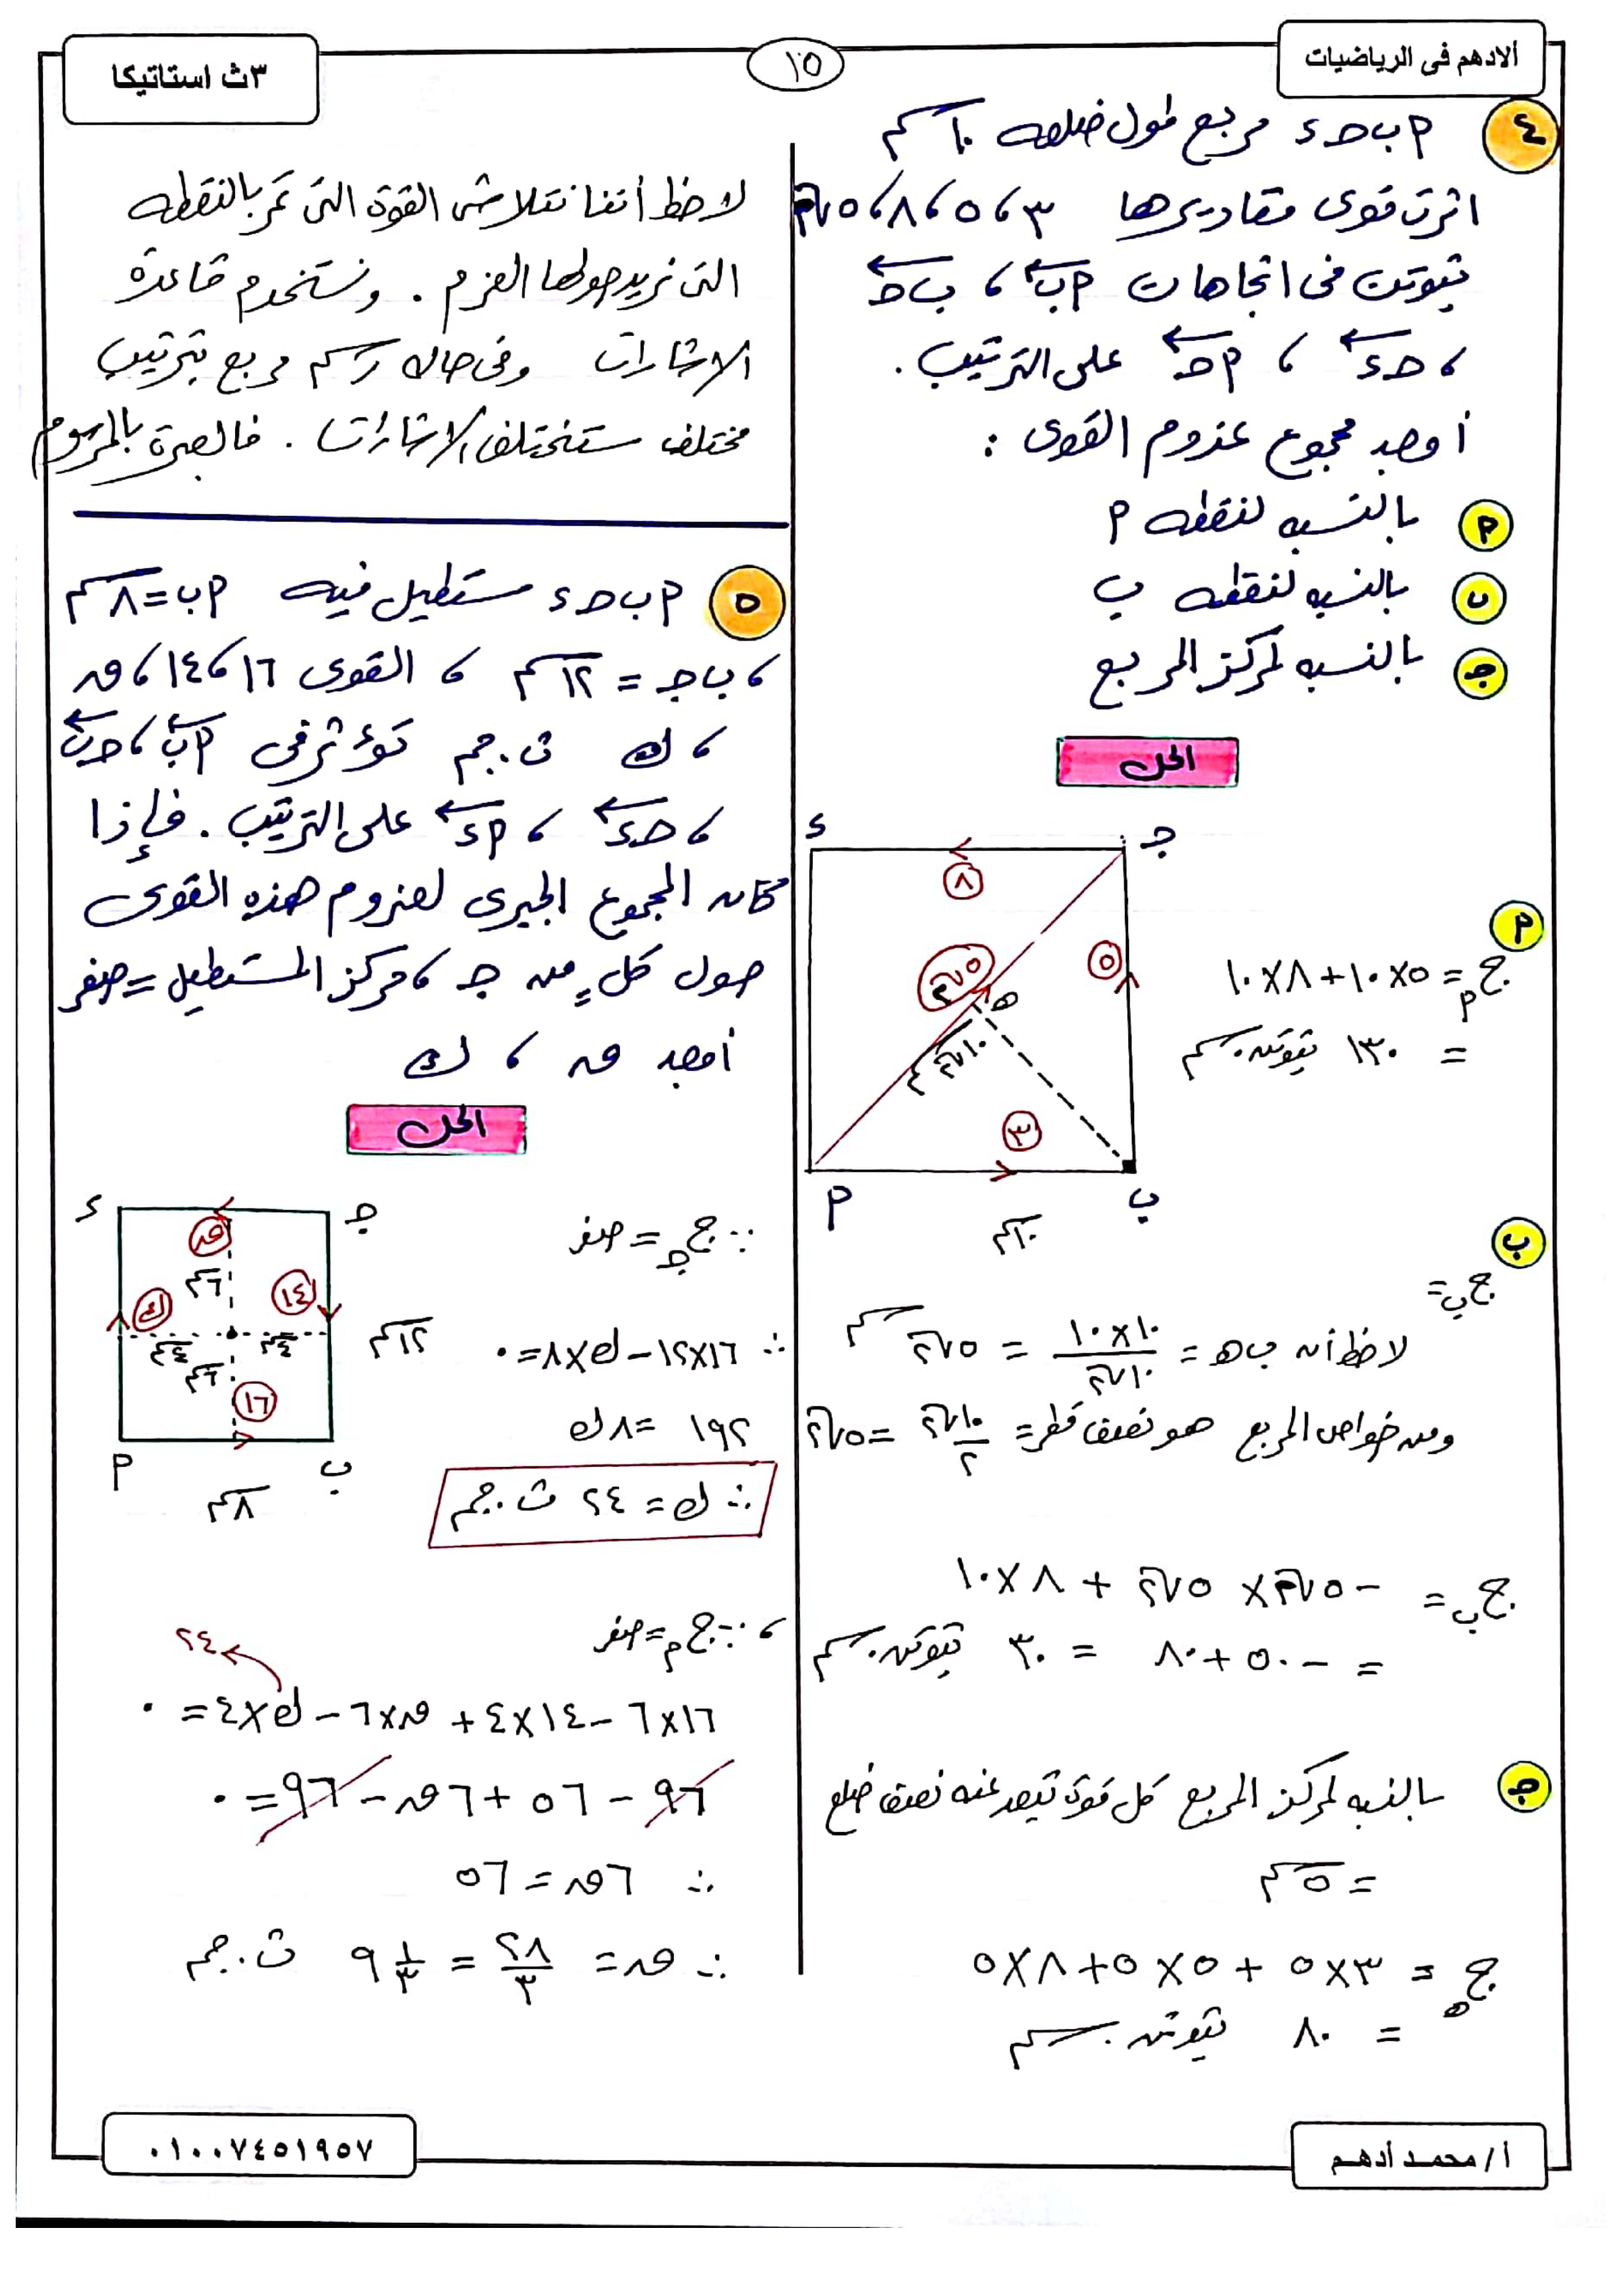 الادهم فى الرياضيات
١٥
٣ث استاتيكا
٤ ٢ ب حـ ء مربع طول ضلعه ١٠ سم
اثرت قوى مقاديرها ٣ ، ٥ ، ٨ ، ٥√٢
نيوتن فى اتجاهات ٢ب ، ب حـ
، حـ ء ، ٢حـ على الترتيب .
أوجد مجموع عزوم القوى :
٢ بالنسبه لنقطه ٢
ب بالنسبه لنقطه ب
جـ بالنسبه لمركز المربع
الحل
ء جـ
٨
٥
٥√٢
هـ
١٠√٢ سم
٣
٢ ب
١٠سم
٢
ج٢ = ٥×١٠ + ٨×١٠
= ١٣٠ نيوتن.سم
ب
جب =
لاحظ أن ب هـ = ١٠×١٠ / ١٠√٢ = ٥√٢ سم
ومن خواص المربع هو نصف قطر = ١٠√٢ / ٢ = ٥√٢
جب = -٥√٢ × ٥√٢ + ٨×١٠
= -٥٠ + ٨٠ = ٣٠ نيوتن.سم
جـ بالنسبه لمركز المربع كل قوة تبعد عنه نصف ضلع
= ٥سم
جهـ = ٣×٥ + ٥×٥ + ٨×٥
= ٨٠ نيوتن.سم
لاحظ أننا نتلاشى القوة التى تمر بالنقطه
التى نريد حولها العزم . ونستخدم قاعدة
الاشارات وفى حاله رسم مربع بترتيب
مختلف ستختلف الاشارات . فالعبرة بالمرسوم
٥ ٢ ب حـ ء مستطيل فيه ٢ب = ٨سم
، ب جـ = ١٢سم ، القوى ١٦ ، ١٤ ، ق
، ك ث.جم تؤثر فى ٢ب ، حـ ب
، حـ ء ، ٢ء على الترتيب . فإذا
كان المجموع الجبرى لعزوم هذه القوى
حول كل من جـ ، مركز المستطيل = صفر
أوجد ق ، ك
الحل
ء جـ
ق
٦سم
١٤
ك
٤سم ٤سم
٦سم
١٦
١٢سم
٢ ب
٨سم
∵ ججـ = صفر
∴ ١٦×١٢ - ك×٨ = ٠
١٩٢ = ٨ك
∴ ك = ٢٤ ث.جم
، ∵ جم = صفر
٢٤
١٦×٦ - ١٤×٤ + ق×٦ - ك×٤ = ٠
٩٦ - ٥٦ + ٦ق - ٩٦ = ٠
∴ ٦ق = ٥٦
∴ ق = ٢٨/٣ = ٩ ١/٣ ث.جم
أ/ محمد أدهم
٠١٠٠٧٤٥١٩٥٧